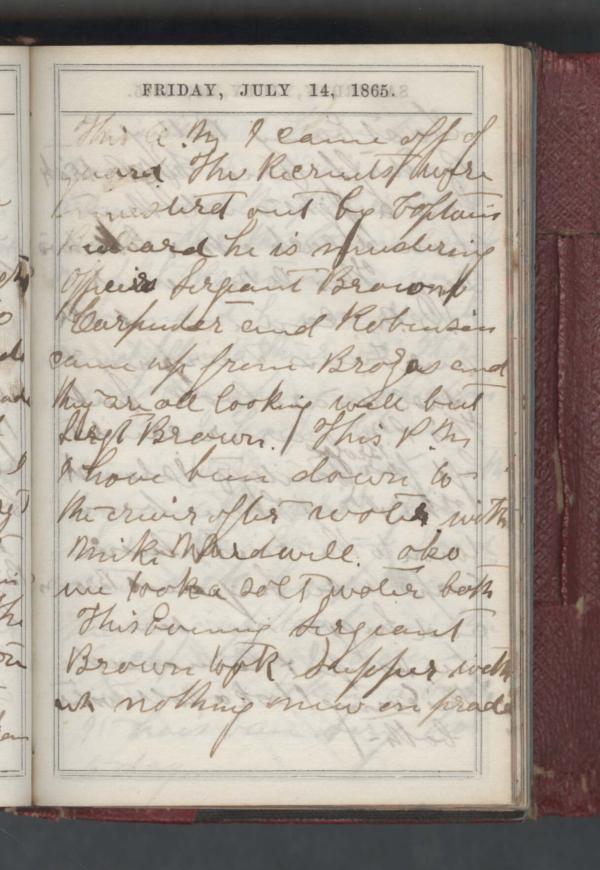 FRIDAY, JULY 14, 1865.
This A.M I came off of
guard The Recruits were
mustered out by Captain
he is mustering
Officeir Sergeant Brown
Carpinder and Robinson
came up from Brazos and
they are all looking well but
Sergt Brown. This P.M
I have been down to
the river after water with
Mike Wardwell. also
we took a solt water bath
This Evening Sergeant
Brown took Supper with
us nothing new on prade